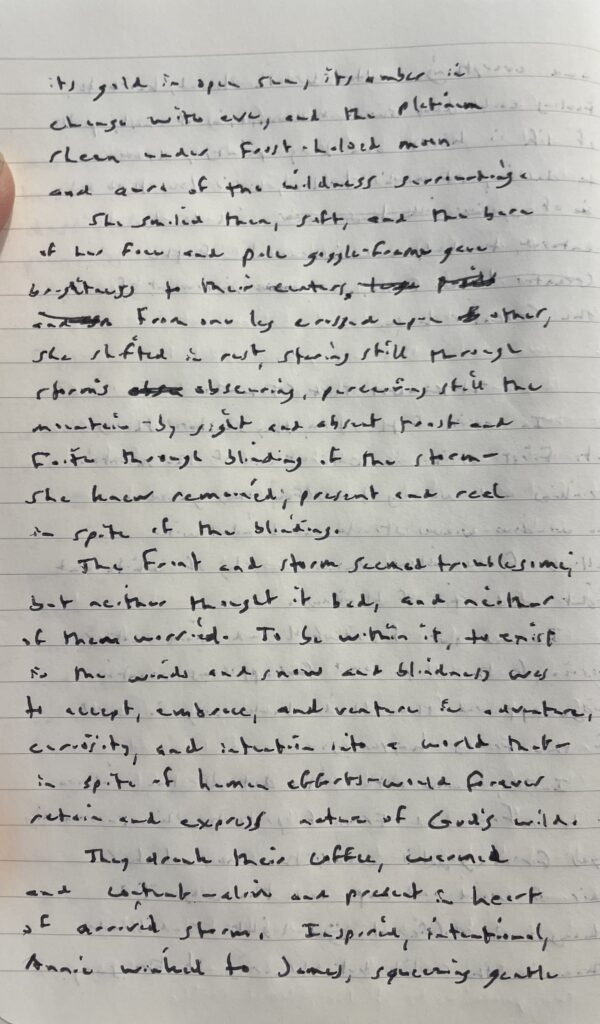 its gold in open sun, its amber in
change with eve, and the platinum
sheen under frost-haloed moon
and aura of the wildness surrounding.
She smiled then, soft, and the bare
of her face and pale goggle-frame gave
brightness to their centers,
From one leg crossed upon other,
she shifted in rest, staring still through
storm's obscuring, perceiving still the
mountain - by sight and absent trust and
faith through blinding of the storm -
she knew remained, present and real
in spite of the blinding.
The front and storm seemed troublesome,
but neither thought it bad, and neither
of them worried. To be within it, to exist
in the winds and snow and blindness was
to accept, embrace, and venture in adventure,
curiosity, and intention into a world that -
in spite of human efforts - would forever
retain and express nature of God's wild.
They drank their coffee, warmed
and content - alive and present in heart
of arrived storm. Inspired, intentional,
Annie winked to James, squeezing gentle